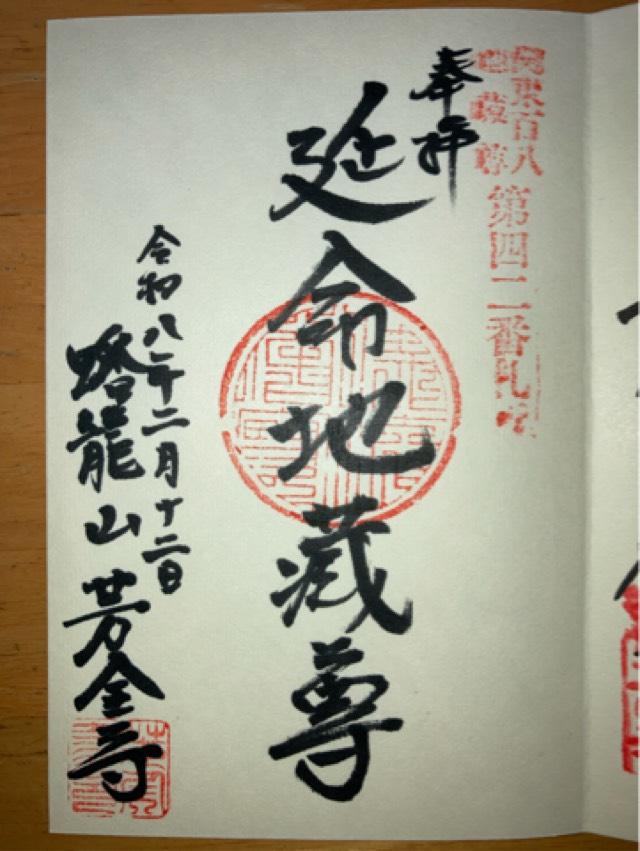 関東百八
地蔵尊
第四二番札所
奉拝
延命地蔵尊
令和八年二月十二日
龍山 芳全寺